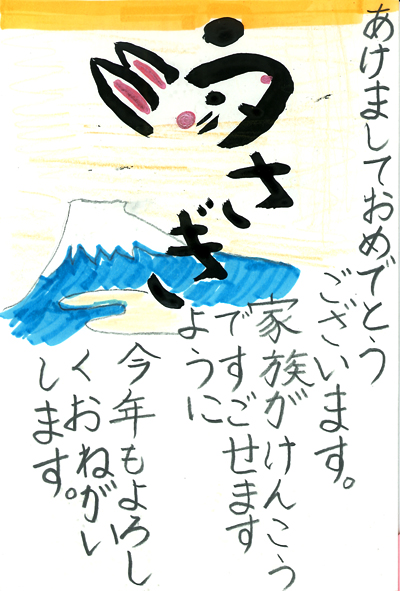 あけましておめでとう
ございます。
家族がけんこう
ですごせます
ように
今年もよろし
くおねがい
します。
うさぎ